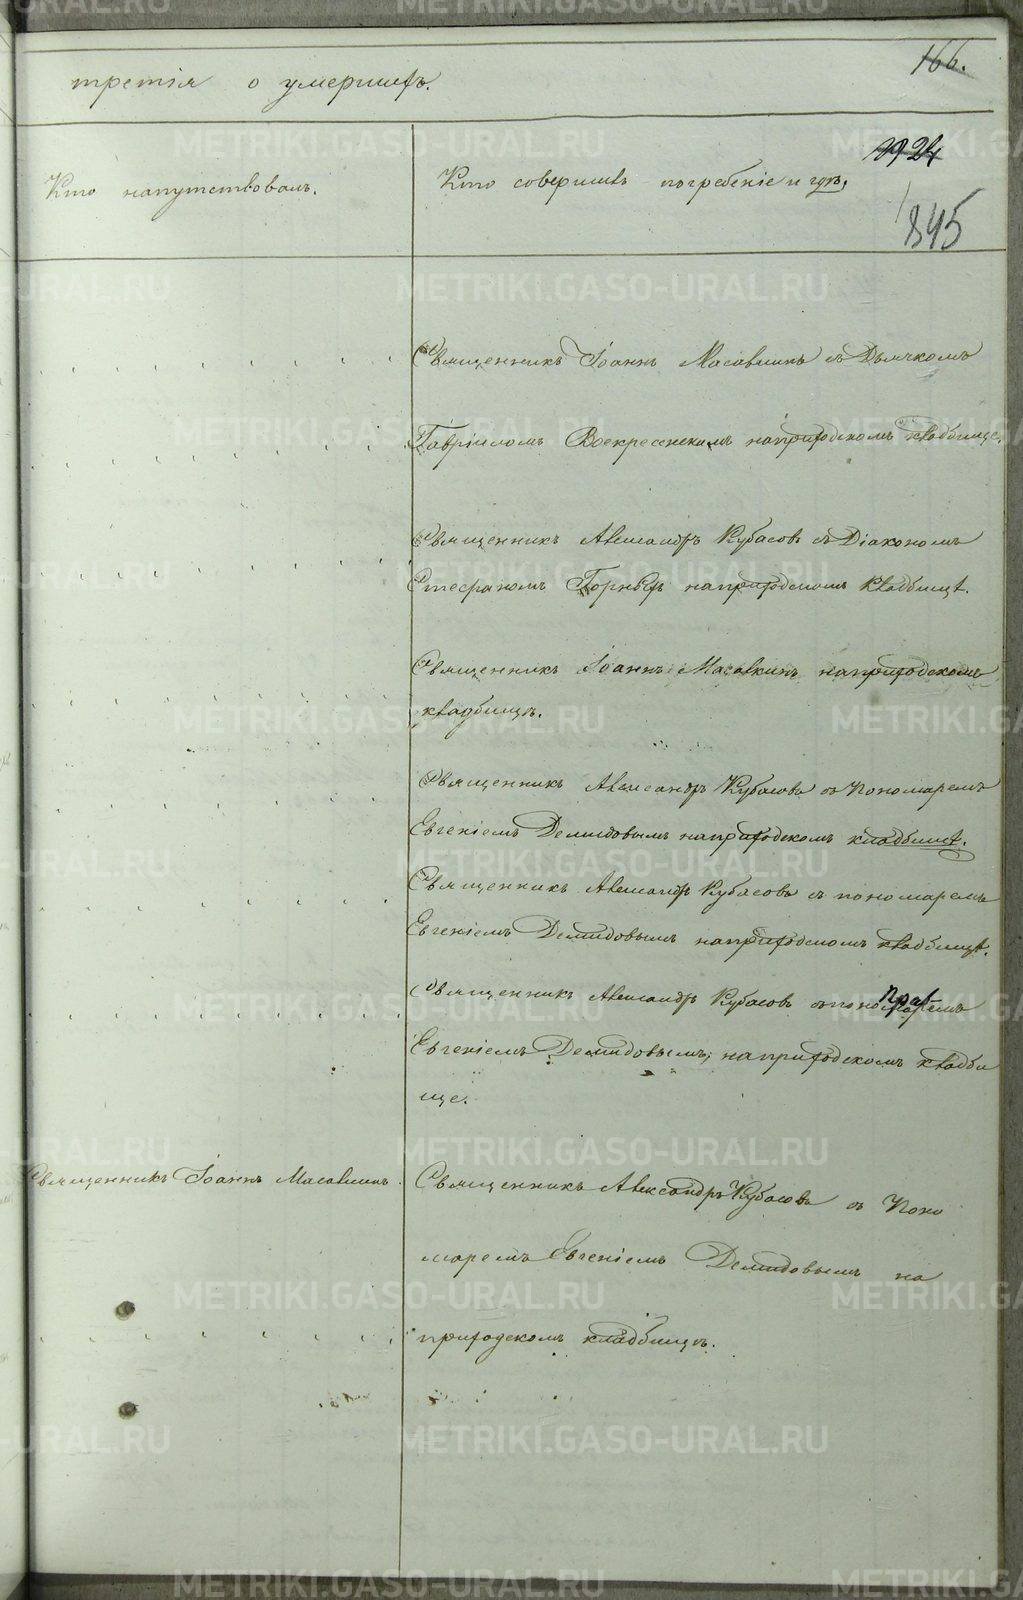 166.
третія о умершихъ.
1924
845
Кто напутствовалъ.
Кто совершилъ погребеніе и гдѣ.
Священникъ Іоаннъ Масавкинъ съ Дьячкомъ
Гавріиломъ Воскресенскимъ на приходскомъ кладбище.
Священникъ Александръ Кубасовъ съ Діакономъ
Стефаномъ на приходскомъ кладбищѣ.
Священникъ Іоаннъ Масавкинъ на приходскомъ
кладбищѣ.
Священникъ Александръ Кубасовъ съ Пономаремъ
Евгеніемъ Демидовымъ на приходскомъ кладбищѣ.
Священникъ Александръ Кубасовъ съ пономаремъ
Евгеніемъ Демидовымъ на приходскомъ кладбищѣ.
Священникъ Александръ Кубасовъ съ пономаремъ
Евгеніемъ Демидовымъ, на приходскомъ кладби
ще.
Священникъ Іоаннъ Масавкинъ.
Священникъ Александръ Кубасовъ съ Поно
маремъ Евгеніемъ Демидовымъ на
приходскомъ кладбищѣ.
METRIKI.GASO-URAL.RU